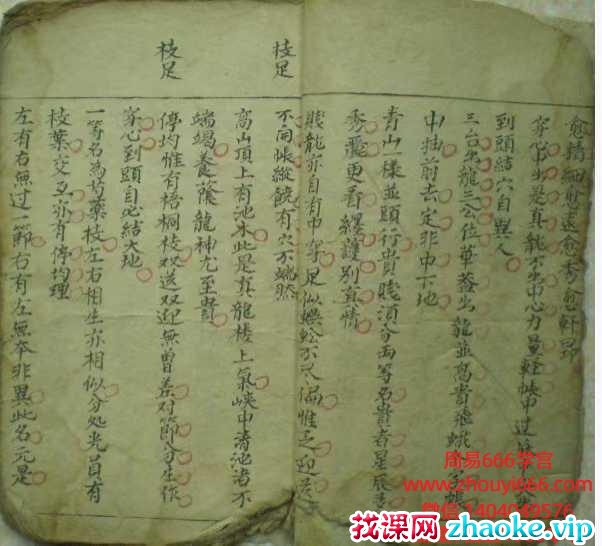 愈精細愈遠愈秀愈軒昂
穿心出是真龍不出中心力量輕帳中過
到頭結穴自異人
三台出龍三公位華蓋出龍並高貴飛蛾
中抽前去定非中下地
青山一樣並頭行貴賤須分兩等名貴者星辰
秀麗更看纏護別真情
賤龍亦自有中等足似蜈蚣不尺偏惟之迎送
不同帳縱饒有穴不端然
枝足
高山頂上有池水此是真龍樓上氣峽中清池濁不
端竭養蔭龍神尤至貴
停均惟有梧桐枝双送双迎無曽差对節分生作
枝足
穿心到頭自必結大地
一等名為芍藥枝左右相生亦相似分処光員有
枝葉交互亦有停均理
左有右無过一節右有左無本非異此名元是
周易666学宫
www.zhouyi666.cn
微信 1404040576
找课网 zhaoke.vip